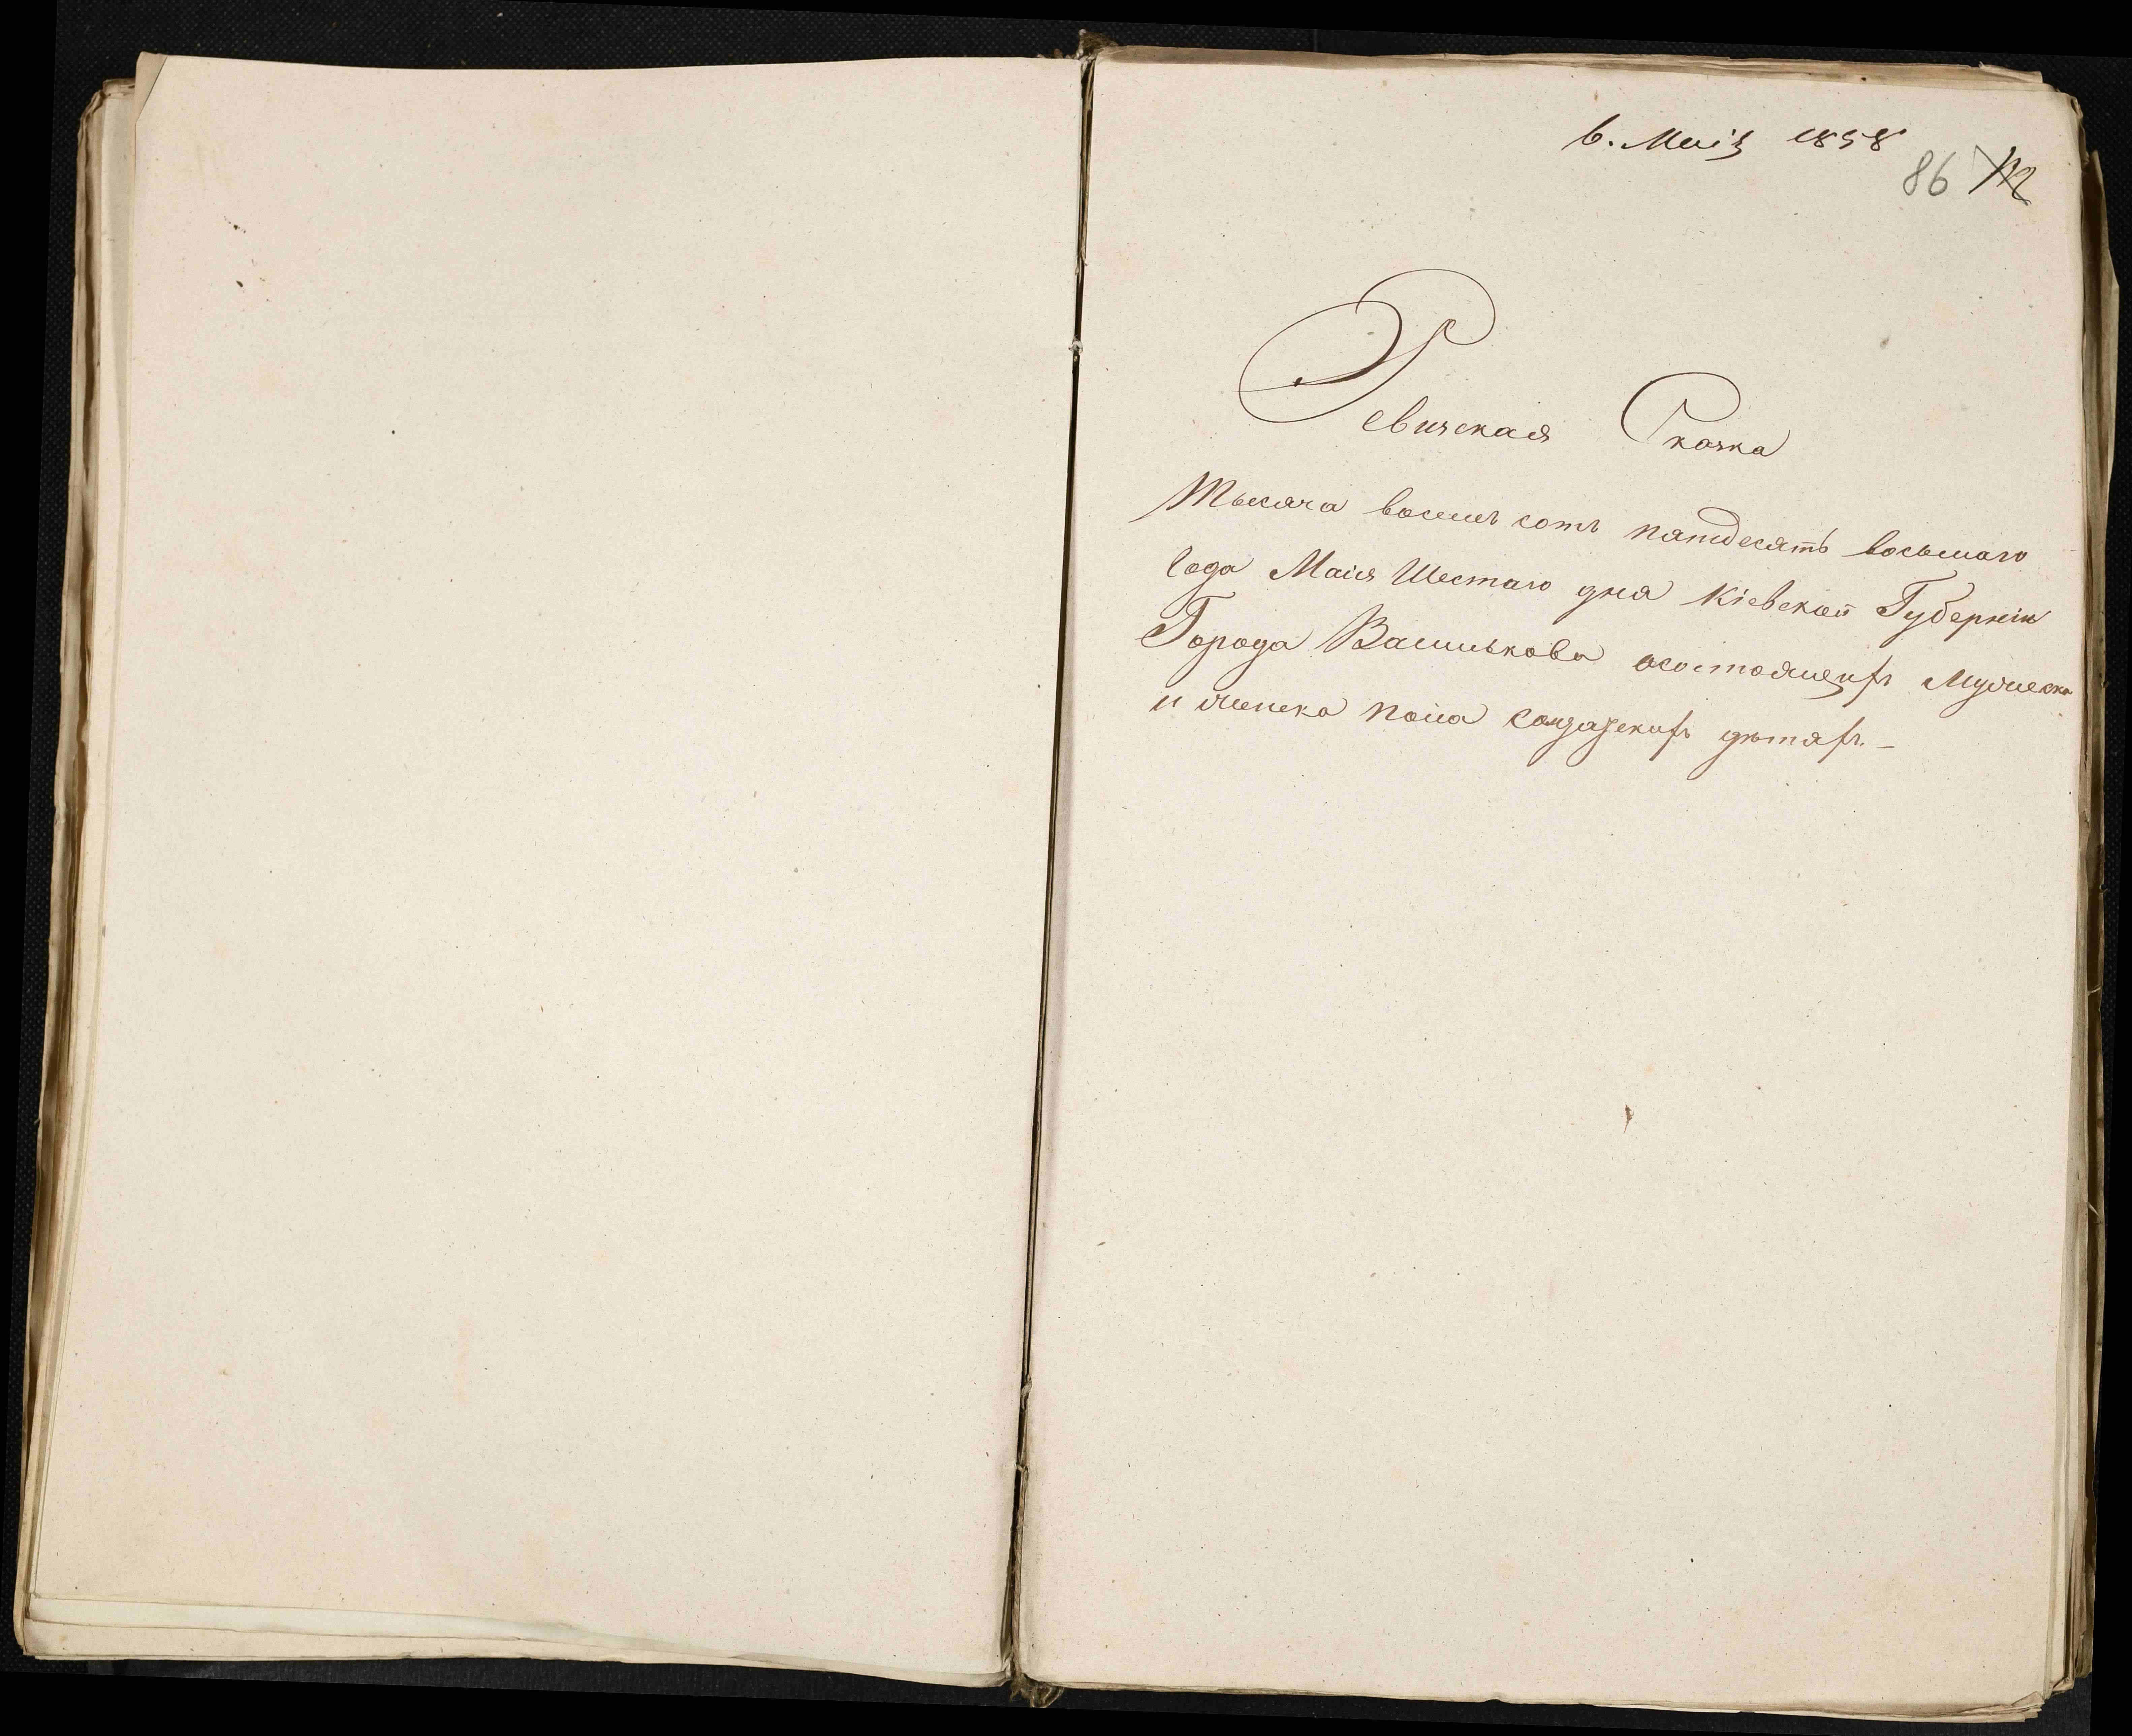 6. Маія 1858
86 112
Ревизская Сказка
Тысяча восемь сотъ пятдесятъ восьмаго
года Маія Шестаго дня Кіевской Губерніи
Города Василькова осостоящихъ Мужеска
и женска пола солдатскихъ дѣтяхъ.–